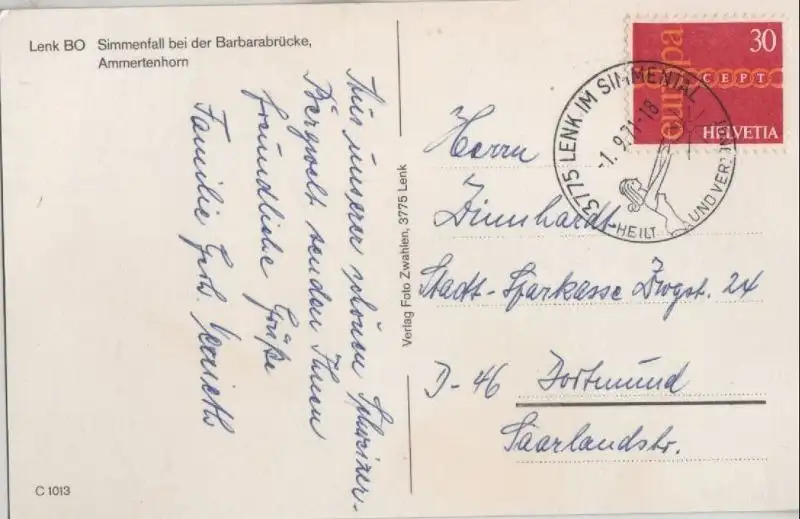 Lenk BO Simmenfall bei der Barbarabrücke,
Ammertenhorn
Aus unserer schönen Schweizer-
Bergwelt senden Ihnen
freundliche Grüße
Familie Gerh.
C 1013
Verlag Foto Zwahlen, 3775 Lenk
europa
30
CEPT
HELVETIA
3775 LENK IM SIMMENTAL
-1.9.71-18
HEILT UND VERJÜNGT
Herrn
Dinnhardt
Stadt-Sparkasse Zwgst. 24
D-46 Dortmund
Saarlandstr.